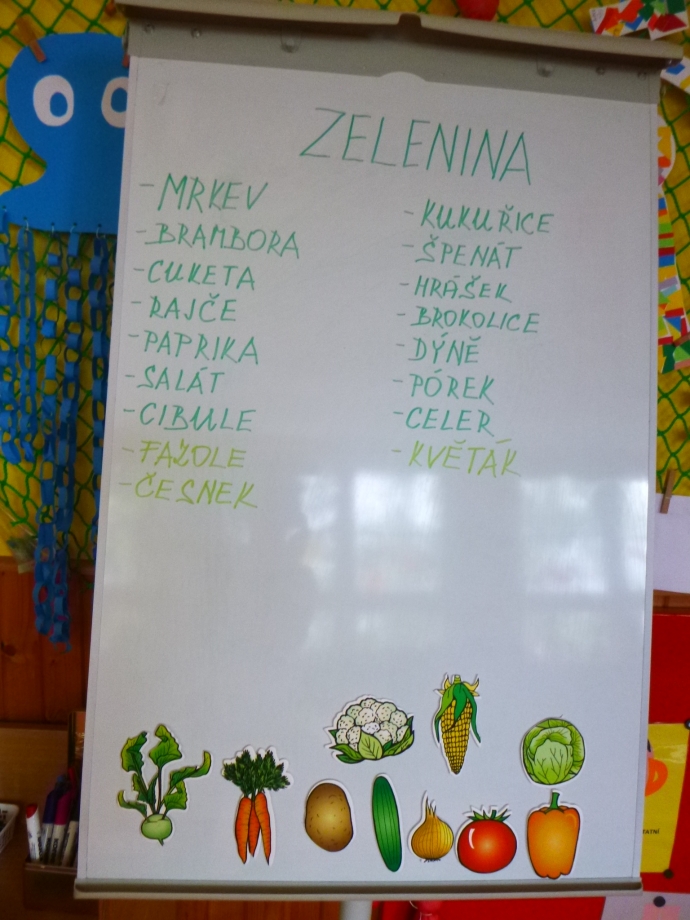 ZELENINA
- MRKEV
- BRAMBORA
- CUKETA
- RAJČE
- PAPRIKA
- SALÁT
- CIBULE
- FAZOLE
- ČESNEK
- KUKUŘICE
- ŠPENÁT
- HRÁŠEK
- BROKOLICE
- DÝNĚ
- PÓREK
- CELER
- KVĚTÁK